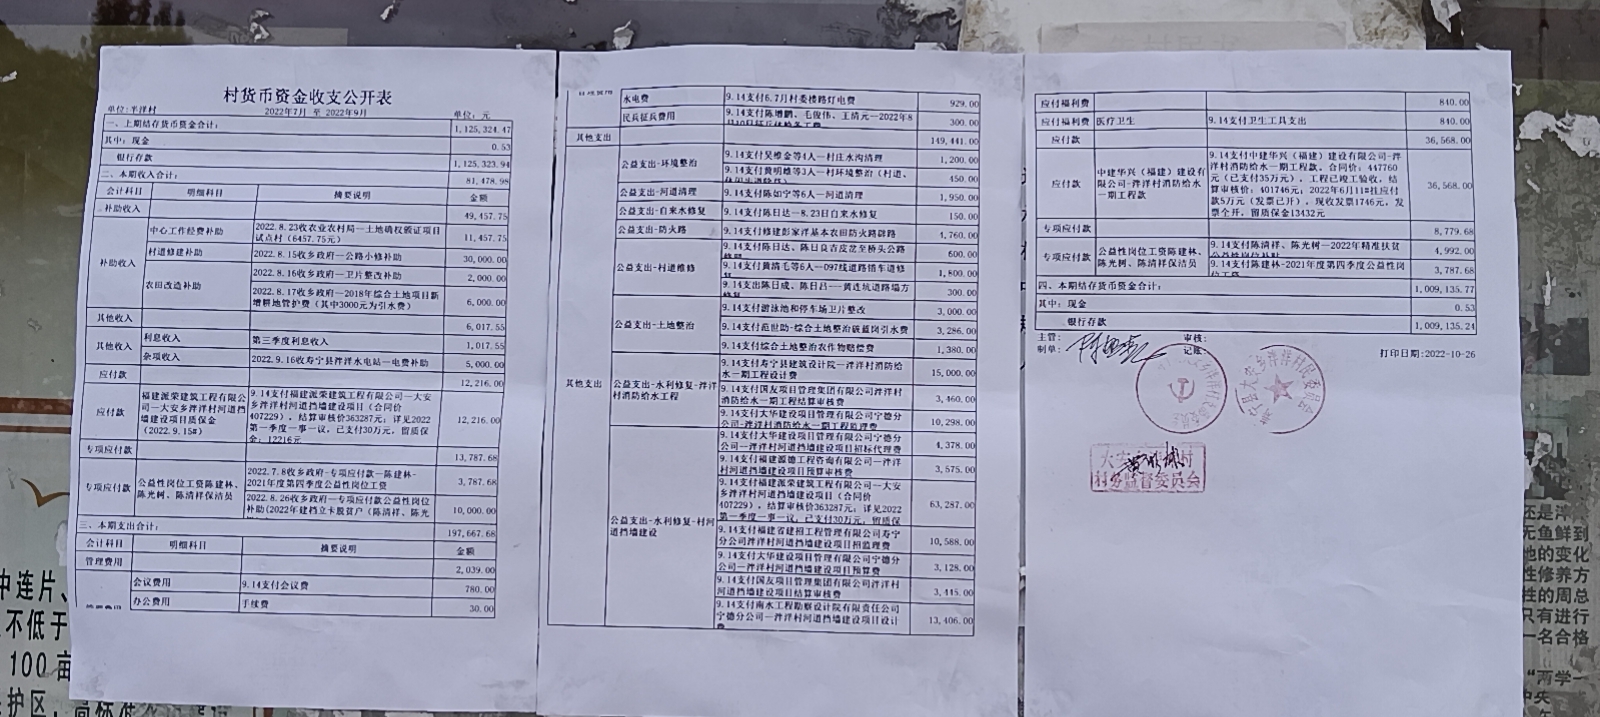 村货币资金收支公开表
单位:半洋村 2022年7月 至 2022年9月 单位:元
一、上期结存货币资金合计: 1,125,324.47
其中:现金 0.53
银行存款 1,125,323.94
二、本期收入合计: 81,478.98
会计科目 明细科目 摘要说明 金额
补助收入 49,457.75
补助收入 中心工作经费补助 2022.8.23收农业农村局一土地确权颁证项目
试点村(6457.75元) 11,457.75
村道修建补助 2022.8.15收乡政府一公路小修补助 30,000.00
农田改造补助 2022.8.16收乡政府一卫片整改补助 2,000.00
2022.8.17收乡政府一2018年综合土地项目新
增耕地管护费(其中3000元为引水费) 6,000.00
其他收入 6,017.55
其他收入 利息收入 第三季度利息收入 1,017.55
杂项收入 2022.9.16收寿宁县泮洋水电站一电费补助 5,000.00
应付款 12,216.00
应付款 福建派荣建筑工程有限公
司一大安乡泮洋村河道挡
墙建设项目质保金
(2022.9.15#)
9.14支付福建派荣建筑工程有限公司一大安
乡泮洋村河道挡墙建设项目(合同价
407229),结算审核价363287元;详见2022
第一季度一事一议,已支付30万元,留质保
金:12216元 12,216.00
专项应付款 13,787.68
专项应付款 公益性岗位工资陈建林、
陈光树、陈清祥保洁员
2022.7.8收乡政府-专项应付款一陈建林-
2021年第四季度公益性岗位工资 3,787.68
2022.8.26收乡政府一专项应付款公益性岗位
补助(2022年建档立卡脱贫户(陈清祥、陈光 10,000.00
三、本期支出合计: 197,667.68
会计科目 明细科目 摘要说明 金额
管理费用 2,039.00
会议费用 9.14支付会议费 780.00
办公费用 手续费 30.00
水电费 9.14支付6.7月村委楼路灯电费 929.00
民兵征兵费用 9.14支付陈增鹏、毛俊伟、王情元一2022年8 300.00
其他支出 149,441.00
其他支出
公益支出-环境整治 9.14支付吴维金等4人一村庄水沟清理 1,200.00
9.14支付黄明雄等3人一村环境整治(村道、 450.00
公益支出-河道清理 9.14支付陈如宁等6人一河道清理 1,950.00
公益支出-自来水修复 9.14支付陈日达一8.23日自来水修复 150.00
公益支出-防火路 9.14支付修建彭家洋基本农田防火路辟路 4,760.00
公益支出-村道维修 9.14支付陈日达、陈日良吉皮岔至桥头公路 600.00
9.14支付黄清毛等6人一097线道路错车道修 1,800.00
9.14支出陈日成、陈日吕一黄连坑道路塌方 300.00
公益支出-土地整治 9.14支付游泳池和停车场卫片整改 3,000.00
9.14支付范世助-综合土地整治碳蓝岗引水费 3,286.00
9.14支付综合土地整治农作物赔偿费 1,380.00
公益支出-水利修复-泮洋
村消防给水工程
9.14支付寿宁县建筑设计院一泮洋村消防给
水一期工程设计费 15,000.00
9.14支付国友项目管理集团有限公司泮洋村
消防给水一期工程结算审核费 3,460.00
9.14支付大华建设项目管理有限公司宁德分
公司一泮洋村消防给水一期工程监理费 10,298.00
公益支出-水利修复-村河
道挡墙建设
9.14支付大华建设项目管理有限公司宁德分
公司一泮洋村河道挡墙建设项目招标代理费 4,378.00
9.14支付福建源德工程咨询有限公司一泮洋
村河道挡墙建设项目预算审核费 3,575.00
9.14支付福建派荣建筑工程有限公司一大安
乡泮洋村河道挡墙建设项目(合同价
407229),结算审核价363287元;详见2022
第一季度一事一议,已支付30万元,留质保 63,287.00
9.14支付福建省建招工程管理有限公司寿宁
分公司泮洋村河道挡墙建设项目招监理费 10,588.00
9.14支付大华建设项目管理有限公司宁德分
公司一泮洋村河道挡墙建设项目预算费 3,128.00
9.14支付国友项目管理集团有限公司泮洋村
河道挡墙建设项目结算审核费 3,415.00
9.14支付南水工程勘察设计院有限责任公司
宁德分公司一泮洋村河道挡墙建设项目设计
费 13,406.00
应付福利费 840.00
应付福利费 医疗卫生 9.14支付卫生工具支出 840.00
应付款 36,568.00
应付款 中建华兴(福建)建设有
限公司-泮洋村消防给水
一期工程款
9.14支付中建华兴(福建)建设有限公司-泮
洋村消防给水一期工程款,合同价:447760
元(已支付35万元),工程已竣工验收,结
算审核价:401746元,2022年6月11#挂应付
款5万元(发票已开),现收发票1746元,发
票全开,留质保金13432元 36,568.00
专项应付款 8,779.68
专项应付款 公益性岗位工资陈建林、
陈光树、陈清祥保洁员
9.14支付陈清祥、陈光树一2022年精准扶贫 4,992.00
9.14支付陈建林-2021年度第四季度公益性岗
位工资 3,787.68
四、本期结存货币资金合计: 1,009,135.77
其中:现金 0.53
银行存款 1,009,135.24
主管: 审核:
制单: 记账:
打印日期:2022-10-26
寿宁县大安乡泮洋村民委员会
村务监督委员会
中连片、
不低于
100亩
护区,高标准
还是洋
无鱼鲜到
他的变化
性修养方
性的周总
只有进行
一名合格
“两学一
中央